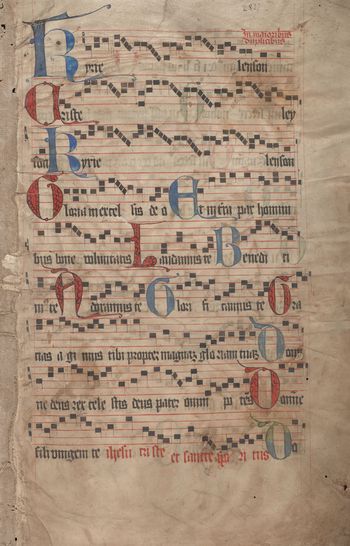 In maioribus
duplicibus
Kyrie leyson
Criste ley
son Kyrie leyson
Gloria in excel sis de o Et in tra pax homini
bus bone voluntatis Laudamus te Benedi ci
mus te Adoramus te Glori fi camus te Gra
cias a gi mus tibi propter magnam gloriam tuam Domi
ne deus rex cele stis deus pater omni po tens Domine
fili unigeni te ihesu cri ste et sancte spiri tus Do